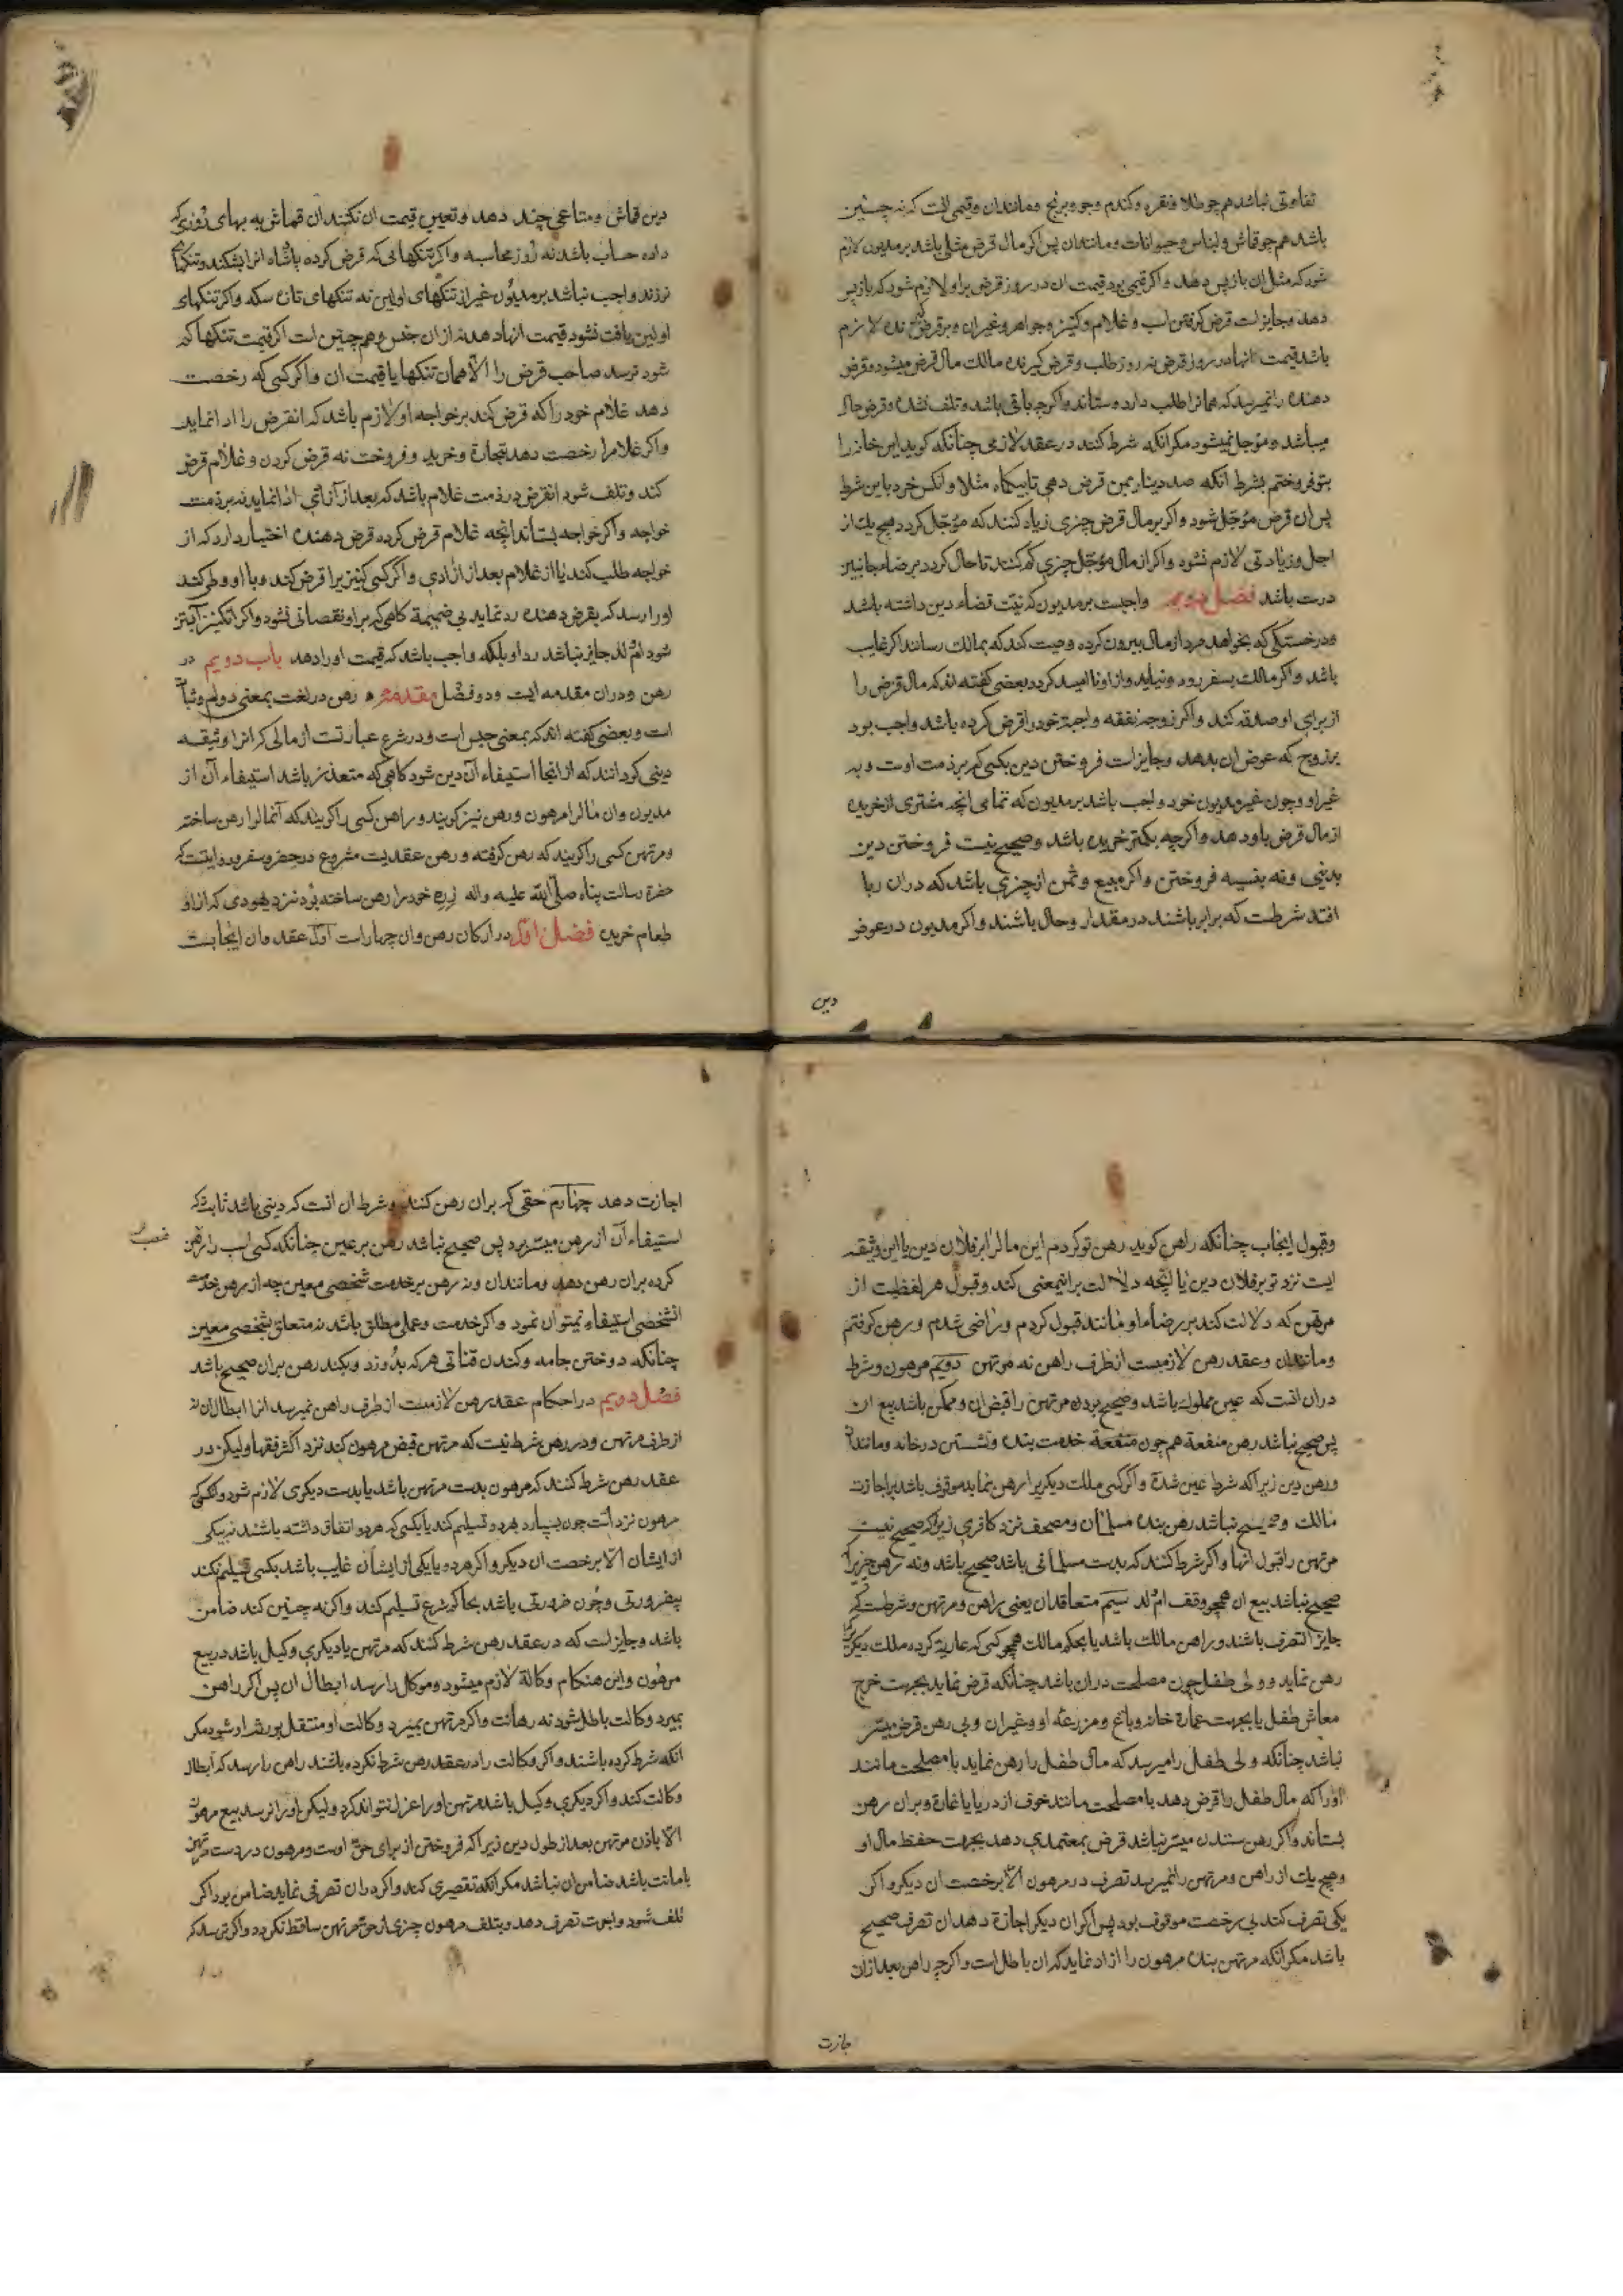 تفاوتی نباشد هم چو طلا و نقره و کندم و جو و برنج و مانند ان و قیمی انست که نه چنین
باشد هم چو قماش و لباس و حیوانات و مانند ان پس اکر مال قرض مثلی باشد بر مدیون لازم
شود که مثل ان باز پس دهد و اکر قیمی بود قیمت ان در روز قرض بر او لازم شود که باز پس
دهد و جایز است قرض کرفتن اسب و غلام و کنیز و جواهر و غیر ان و بر قرض کیرنده لازم
باشد قیمت انها در روز قرض نه روز طلب و قرض کیرنده مالک مال قرض میشود و قرض
دهنده را نمیرسد که همانرا طلب دارد و ستاند و اکرچه باقی باشد و تلف نشده و قرض حال
میباشد و مؤجل نمیشود مکر انکه شرط کنند در عقد لازمی چنانکه کوید این خانه را
بتو فروختم بشرط انکه صد دینار بمن قرض دهی تا بیکماه مثلا و انکس خرد باین شرط
پس ان قرض مؤجل شود و اکر بر مال قرض چیزی زیاد کنند که مؤجل کردد هیچ یک از
اجل و زیادتی لازم نشود و اکر از مال مؤجل چیزی کم کنند تا حال کردد برضاء جانبین
درست باشد فصل دویم واجبست بر مدیون که نیت قضاء دین داشته باشد
و در خستکی که بخواهد مرد از مال بیرون کرده وصیت کند که بمالک رسانند اکر غایب
باشد و اکر مالک بسفر رود و نیاید و از او نا امید کردد بعضی کفته اند که مال قرض را
از برای او صدقه کند و اکر زوجه نفقه واجبه خود را قرض کرده باشد واجب بود
بر زوج که عوض ان بدهد و جایز است فروختن دین بکسی که بر ذمت اوست و بر
غیر او و چون غیر مدیون خود واجب باشد بر مدیون که تمامی انچه مشتری از خریده
از مال قرض باو دهد و اکرچه بکمتر خریده باشد و صحیح نیست فروختن دین
بدینی و نه بنسیه فروختن و اکر مبیع و ثمن از چیزی باشد که در ان ربا
افتد شرطست که برابر باشند در مقدار و حال باشند و اکر مدیون در عوض
دین
دین قماش و متاعی چند دهد و تعیین قیمت ان نکنند ان قماش به بهای روزی که
داده حساب باشد نه روز محاسبه و اکر تنکهائی که قرض کرده پاشاه انرا بشکند و تنکهای
نو زند واجب نباشد بر مدیون غیر از تنکهای اولین نه تنکهای تازه سکه و اکر تنکهای
اولین یافت نشود قیمت انها دهد نه از ان جنس و هم چنین است اکر قیمت تنکها کم
شود نرسد صاحب قرض را الا همان تنکها یا قیمت ان و اکر کسی که رخصت
دهد غلام خود را که قرض کند بر خواجه او لازم باشد که انقرض را ادا نماید
و اکر غلام را رخصت دهد بتجارة و خرید و فروخت نه قرض کردن و غلام قرض
کند و تلف شود انقرض در ذمت غلام باشد که بعد از آزادی ادا نماید نه بر ذمت
خواجه و اکر خواجه بستاند انچه غلام قرض کرده قرض دهنده اختیار دارد که از
خواجه طلب کند یا از غلام بعد از ازادی و اکر کسی کنیز یرا قرض کند و با او وطی کند
او را رسد که بقرض دهنده رد نماید بی ضمیمه کاهی که بر او نقصانی نشود و اکر انکنیز آبستن
شود ام ولد جایز نباشد رد او بلکه واجب باشد که قیمت او را دهد باب دویم در
رهن و در ان مقدمه ایست و دو فصل مقدمه رهن در لغت بمعنی دوام و ثبات
است و بعضی کفته اند که بمعنی حبس است و در شرع عبارتست از مالی که انرا وثیقه
دینی کردانند که از انجا استیفاء آن دین شود کاهی که متعذر باشد استیفاء آن از
مدیون و ان مال را مرهون و رهن نیز کویند و راهن کسی را کویند که آنمال را رهن ساخته
و مرتهن کسی را کویند که رهن کرفته و رهن عقدیست مشروع در حضر و سفر و روایتست که
حضرة رسالت پناه صلی الله علیه و اله زره خود را رهن ساخته بود نزد یهودی که از او
طعام خریده فصل اول در ارکان رهن و ان چهار است اول عقد و ان ایجابست
و قبول ایجاب چنانکه راهن کوید رهن تو کردم این مال را بر فلان دین یا این وثیقه
ایست نزد تو بر فلان دین یا انچه دلالت بر انیمعنی کند و قبول هر لفظیست از
مرتهن که دلالت کند بر رضاء او مانند قبول کردم و راضی شدم و رهن کرفتم
و مانند ان و عقد رهن لازمست از طرف راهن نه مرتهن دویم مرهون و شرط
در ان انست که عین مملوک باشد و صحیح بود مرتهن را قبض ان و ممکن باشد بیع ان
پس صحیح نباشد رهن منفعة هم چون منفعة خدمت بنده و نشستن در خانه و مانند ان
و رهن دین زیرا که شرط عین شده و اکر کسی ملک دیکریرا رهن نماید موقوف باشد بر اجازت
مالک و صحیح نباشد رهن بنده مسلمان و مصحف نزد کافری زیرا که صحیح نیست
مرتهن را قبول انها و اکر شرط کنند که بدست مسلمانی باشد صحیح باشد و نه رهن چیزیرا که
صحیح نباشد بیع ان همچو وقف ام ولد سیم متعاقدان یعنی راهن و مرتهن و شرطست که
جایز التصرف باشند و راهن مالک باشد یا بحکم مالک همچو کسی که عاریة کرده ملک دیکریرا که
رهن نماید و ولی طفل چون مصلحت در ان باشد چنانکه قرض نماید بجهت خرج
معاش طفل یا بجهت عمارة خانه و باغ و مزرعه او و غیر ان و بی رهن قرض میسر
نباشد چنانکه ولی طفل را میرسد که مال طفل را رهن نماید با مصلحت مانند
او را که مال طفل را قرض دهد با مصلحت مانند خوف از دریا یا غارة و بر ان رهن
بستاند و اکر رهن ستدن میسر نباشد قرض بمعتمدی دهد بجهت حفظ مال او
و هیچ یک از راهن و مرتهن را نمیرسد تصرف در مرهون الا برخصت ان دیکر و اکر
یکی تصرف کند بی رخصت موقوف بود پس اکر ان دیکر اجازة دهد ان تصرف صحیح
باشد مکر انکه مرتهن بنده مرهون را ازاد نماید که ان باطل است و اکرچه راهن بعد از ان
جازت
اجازت دهد چهارم حقی که بر ان رهن کنند و شرط ان انست که دینی باشد ثابت که
استیفاء آن از رهن میسر بود پس صحیح نباشد رهن بر عین چنانکه کسی اسب را رهن
غصب
کرده بر ان رهن دهد و مانند ان و نه رهن بر خدمت شخصی معین چه از رهن خدمت
انشخص استیفاء نمیتوان نمود و اکر خدمت و عملی مطلق باشد نه متعلق بشخصی معین
چنانکه دوختن جامه و کندن قناتی هر که بدوزد و بکند رهن بر ان صحیح باشد
فصل دویم در احکام عقد رهن لازمست از طرف راهن نمیرسد انرا ابطال ان نه
از طرف مرتهن و در رهن شرط نیست که مرتهن قبض مرهون کند نزد اکثر فقها و لیکن در
عقد رهن شرط کنند که مرهون بدست مرتهن باشد یا بدست دیکری لازم شود و انکسی که
مرهون نزد اوست چون بسپارد بهر دو تسلیم کند یا بکسی که هر دو اتفاق داشته باشند نه بیکی
از ایشان الا برخصت ان دیکر و اکر هر دو یا یکی از ایشان غایب باشد بکسی تسلیم نکند
بیضرورتی و چون ضرورتی باشد بحاکم شرع تسلیم کند و اکر نه چنین کند ضامن
باشد و جایز است که در عقد رهن شرط کنند که مرتهن یا دیکری وکیل باشد در بیع
مرهون و این هنکام وکالة لازم میشود و موکل را رسد ابطال ان پس اکر راهن
بمیرد وکالت باطل شود نه رهانت و اکر مرتهن بمیرد وکالت او منتقل بورثه او نشود مکر
انکه شرط کرده باشند و اکر وکالت را در عقد رهن شرط نکرده باشند راهن را رسد که ابطال
وکالت کند و اکر دیکری وکیل باشد مرتهن او را عزل نتواند کرد و لیکن او را نرسد بیع مرهون
الا باذن مرتهن بعد از حلول دین زیرا که فروختن از برای حق اوست و مرهون در دست مرتهن
بامانت باشد ضامن ان نباشد مکر انکه تقصیری کند و اکر در ان تصرفی نماید ضامن بود اکر
تلف شود و اجرت تصرف دهد و بتلف مرهون چیزی از حق مرتهن ساقط نکردد و اکر ترسد که